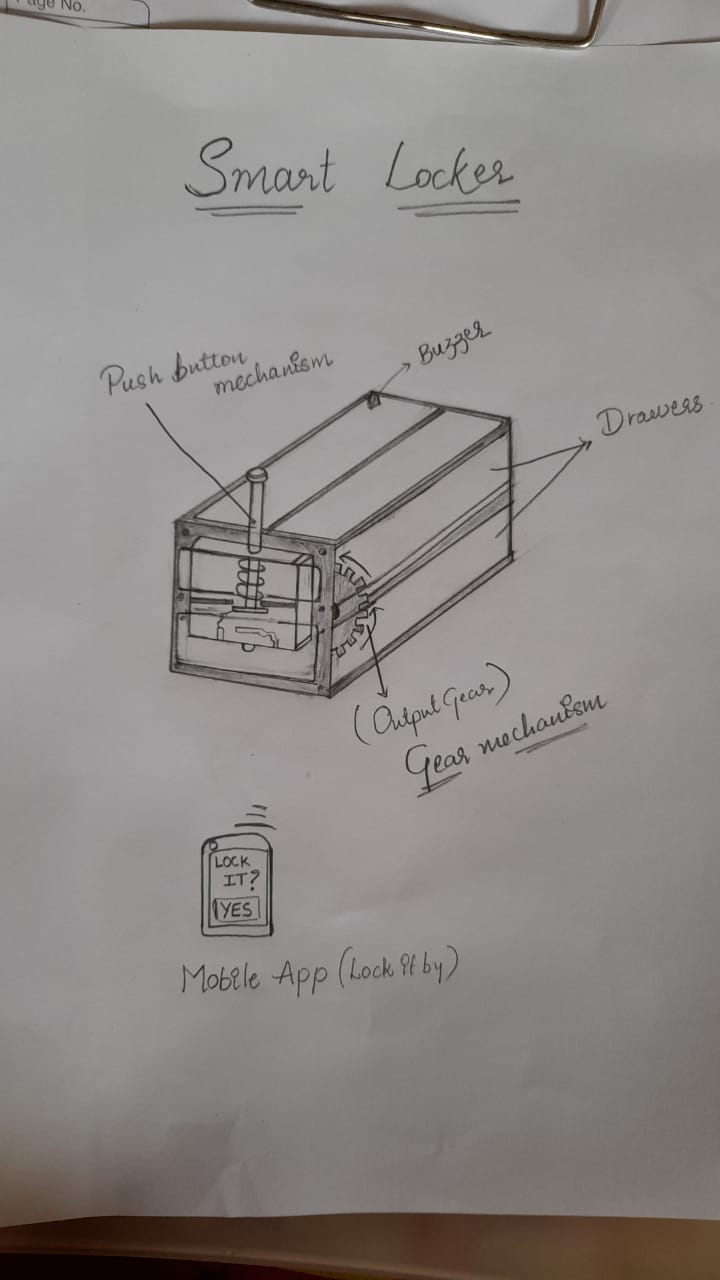 Page No.
Smart Locker
Buzzer
Push button
mechanism
Drawers
(Output Gear)
Gear mechanism
LOCK
IT?
YES
Mobile App (Lock it by)